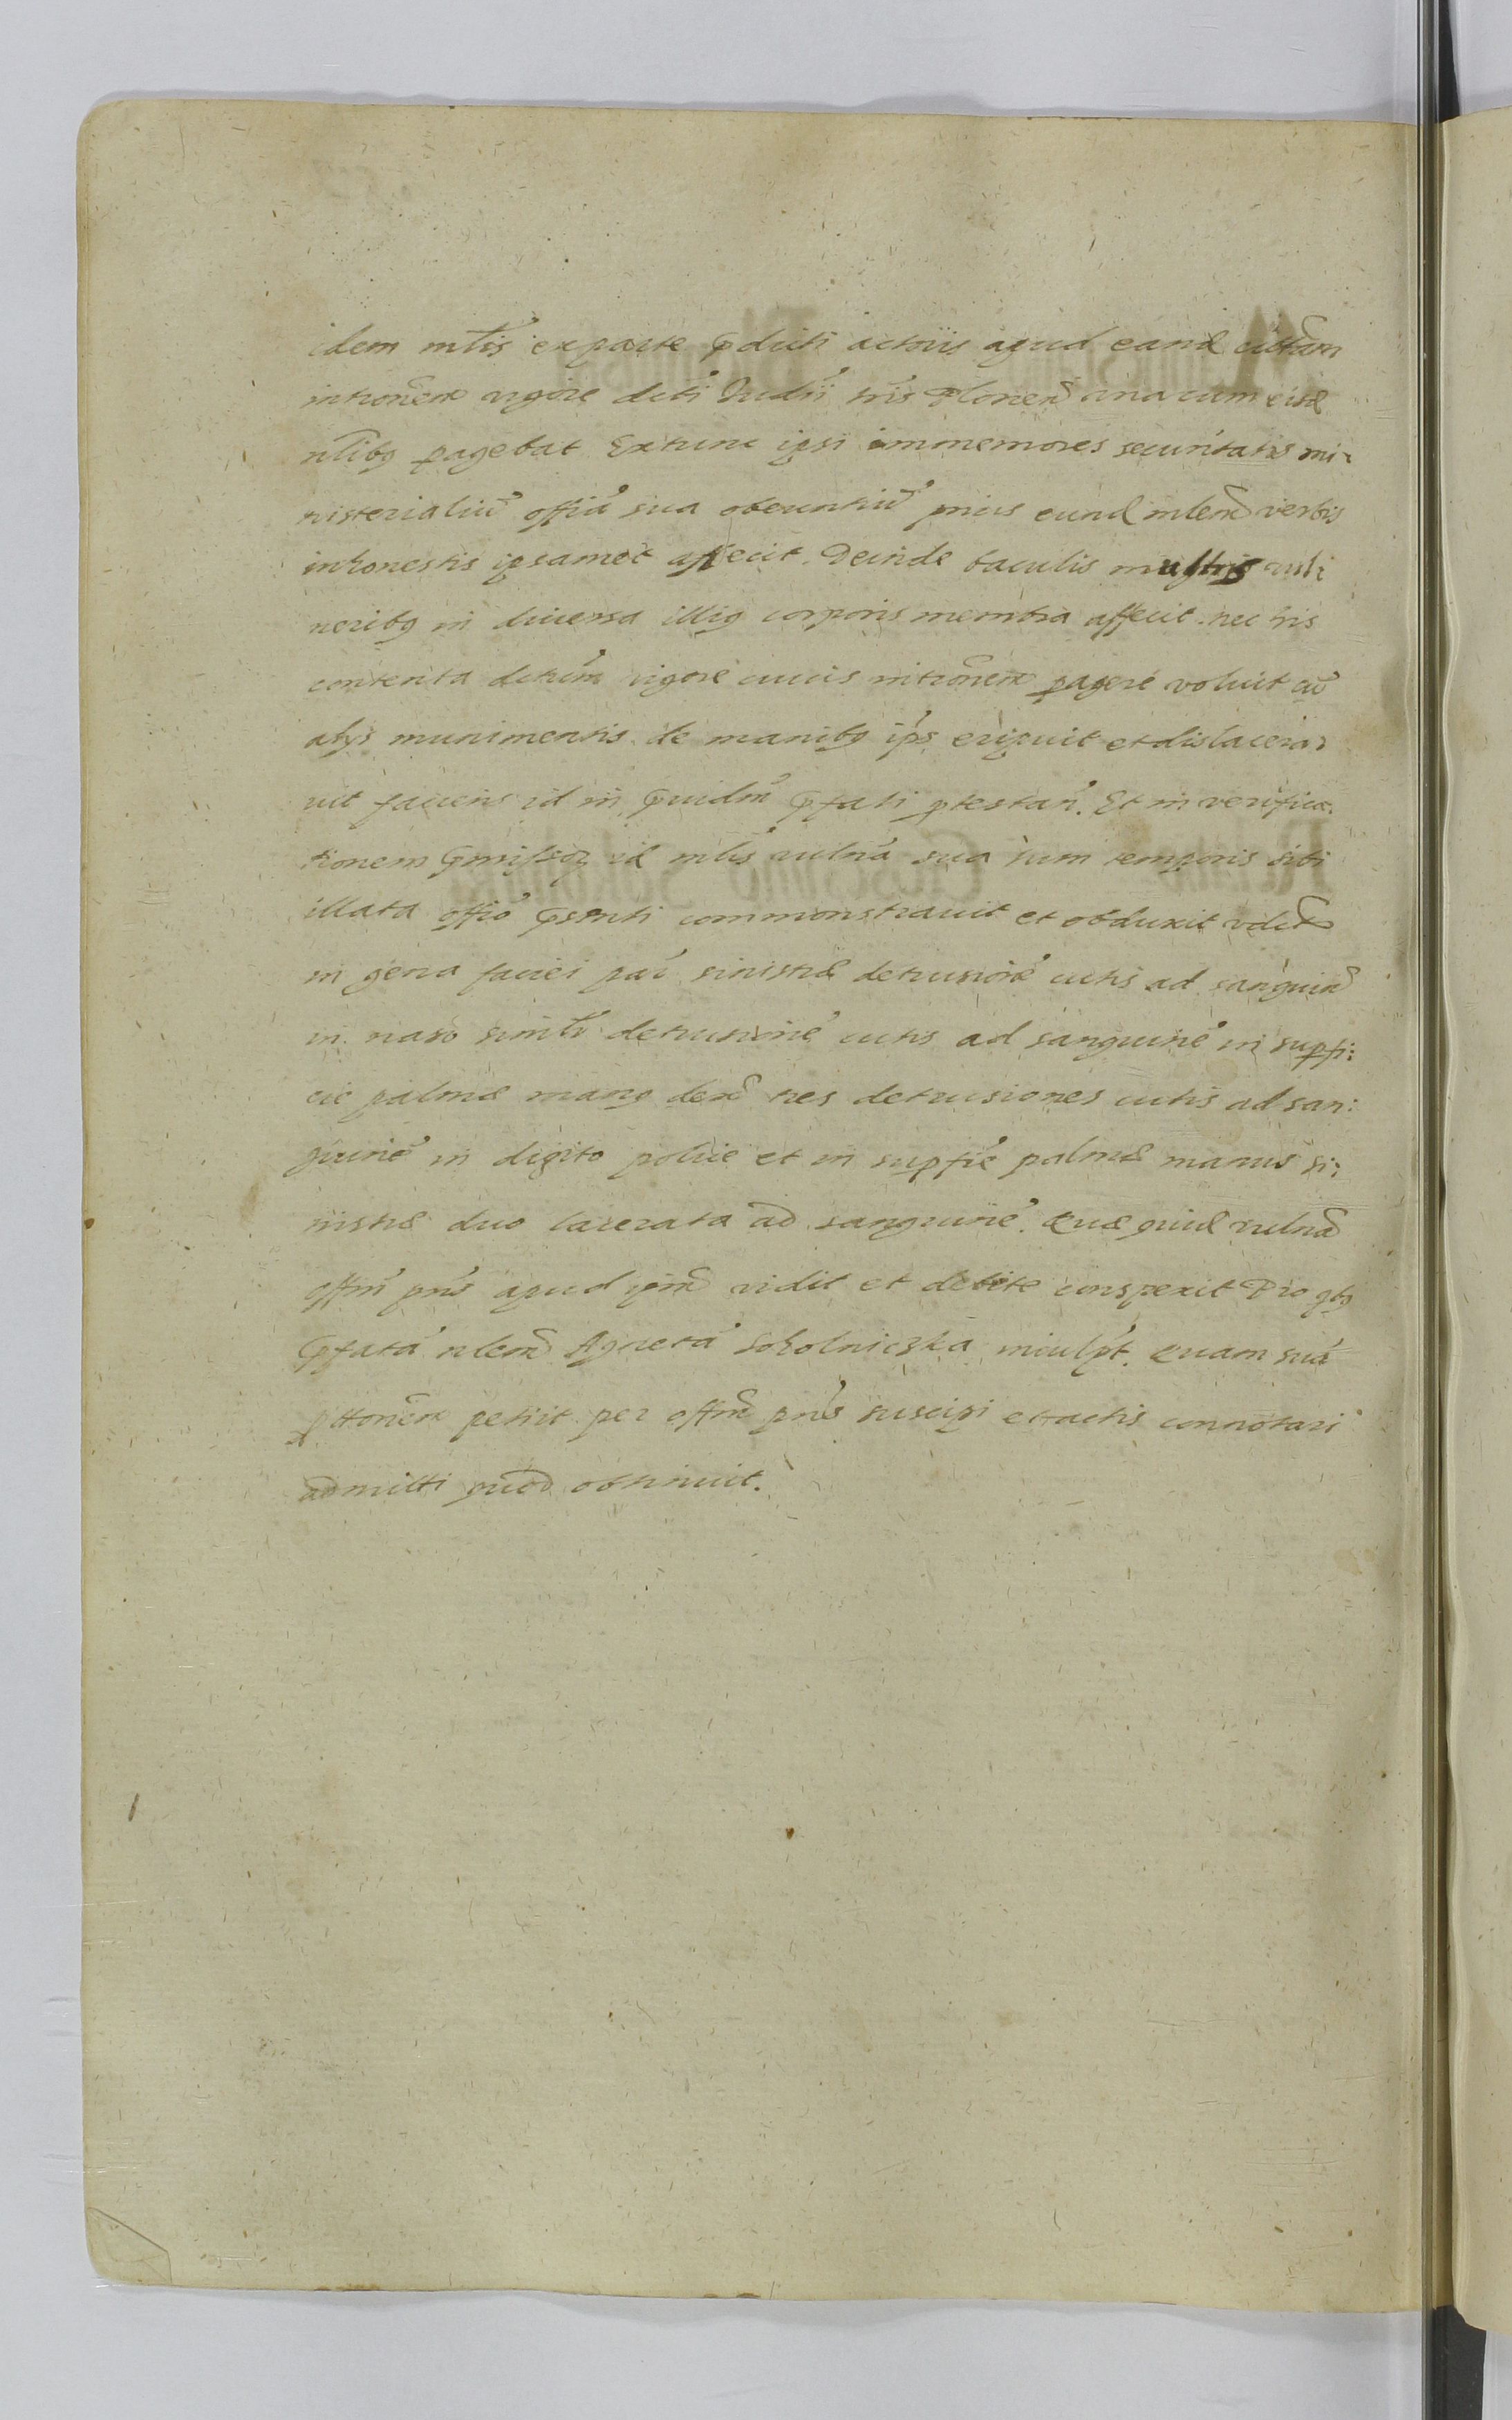 idem mlis ex parte pdicti actoris apud eand citam
intronem vigore dcti Iudii tris Plonen una cum eisd
nlibq pagebat Extunc ipsi immemores securitatis mi-
nisterialiu offia sua obeuntiu prius eund mlem verbis
inhonestis ipsamet affecit. Deinde baculis multis vul:
neribq in diversa illiq corporis membra affecit. nec his
contenta vigore cuius intronem pagere voluit cu
alys munimentis de manibq ips eripuit et dislacera-
vit faciens id in pfati ptestan. Et in verifica-
tionem pmissoz id mlis vulna sua tum temporis sibi
illata offio psenti commonstravit et obduxit vdct
in gena faciei sinistrae detrusione cutis ad sanguin
in naso simlr detrusione cutis ad sanguine in supfi:
cie palmae manq dex tres detrusiones cutis ad san:
guine in digito police et in supfie palmae manus si:
nistrae duo lacerata ad sanguine. Quae quid vulna
offm pns apud ipm vidit et debite conspexit Pro qbq
pfata nlem Agneta Sokolniczka inculpt. Quam sua
pttonem petiit per offm pns suscipi et actis connotari
admitti quod obtinuit.